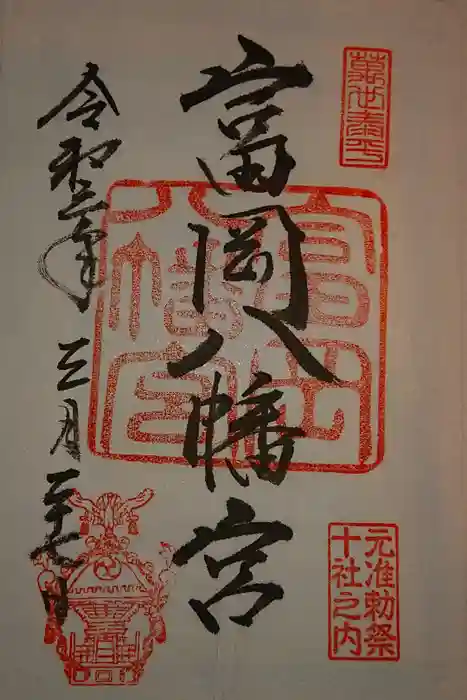 萬世泰平
富岡八幡宮
元准勅祭
十社之内
令和二年三月二十七日